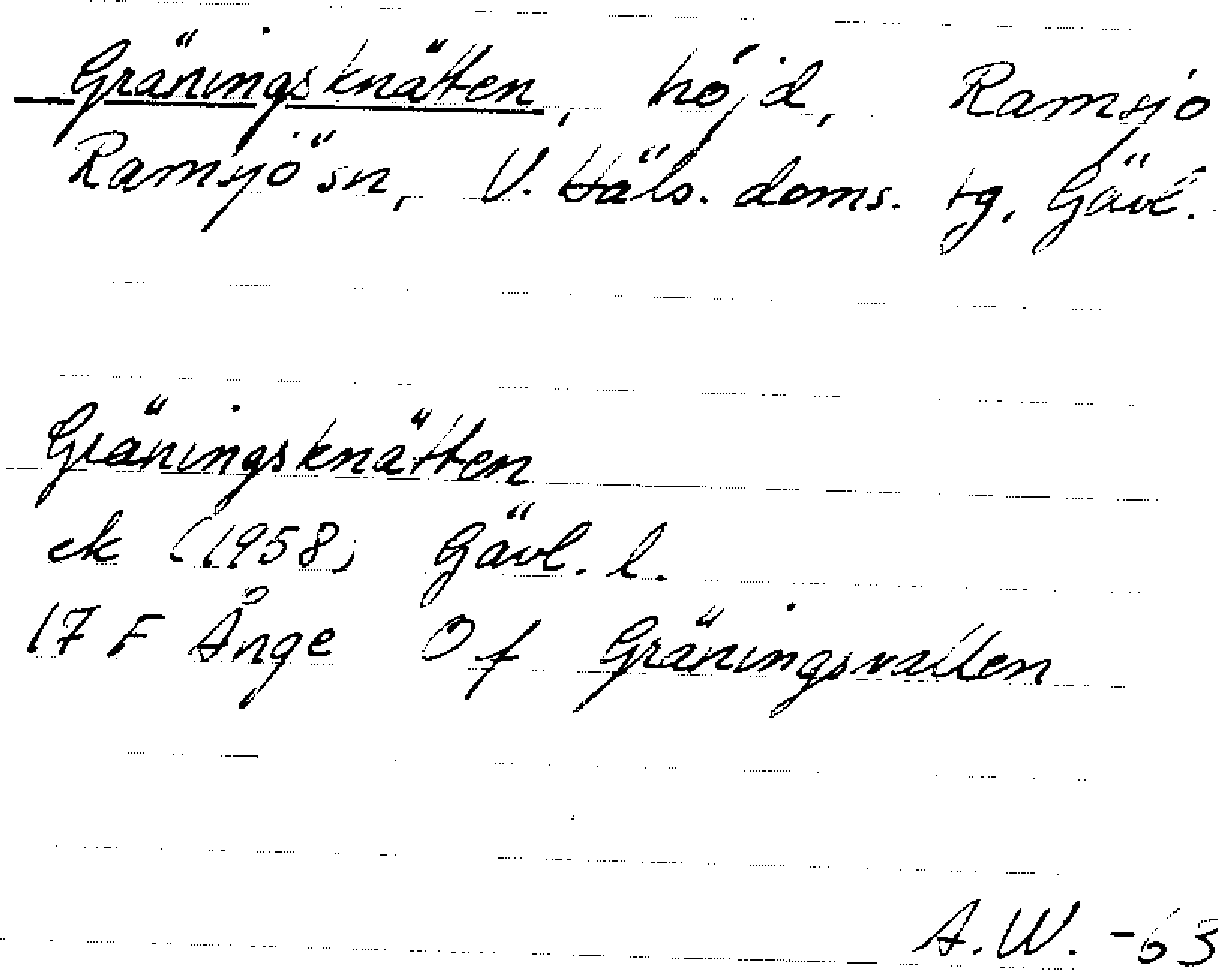 Gräningsknätten, höjd, Ramsjö
Ramsjö sn, V. Häls. doms. tg, Gävl.
Gräningsknätten
ek (1958) Gävl. l.
17 F Ånge O f Gräningsvallen
A.W. -63